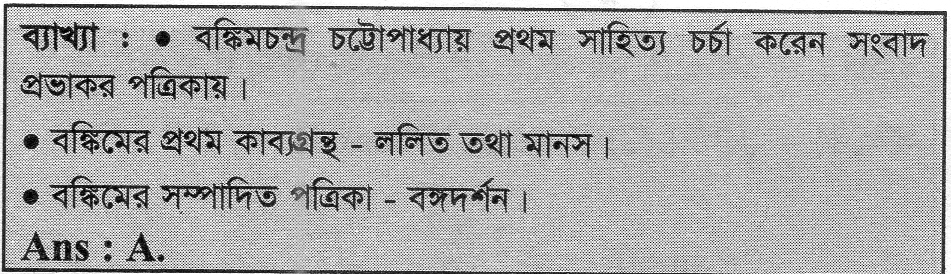 ব্যাখ্যা : ● বঙ্কিমচন্দ্র চট্টোপাধ্যায় প্রথম সাহিত্য চর্চা করেন সংবাদ
প্রভাকর পত্রিকায়।
● বঙ্কিমের প্রথম কাব্যগ্রন্থ - ললিত তথা মানস।
● বঙ্কিমের সম্পাদিত পত্রিকা - বঙ্গদর্শন।
Ans : A.